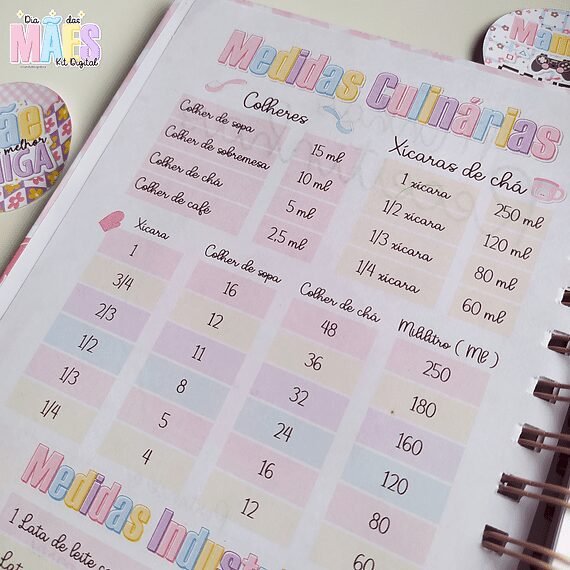 Dia das
MÃES
Kit Digital
Mam
ãe
melhor
IGA
Medidas Culinárias
Colheres
Colher de sopa 15 ml
Colher de sobremesa 10 ml
Colher de chá 5 ml
Colher de café 2,5 ml
Xícaras de chá
1 xícara 250 ml
1/2 xícara 120 ml
1/3 xícara 80 ml
1/4 xícara 60 ml
Xícara Colher de sopa Colher de chá Mililitro (Ml)
1 16 48 250
3/4 12 36 180
2/3 11 32 160
1/2 8 24 120
1/3 5 16 80
1/4 4 12 60
Medidas Indust
1 Lata de leite